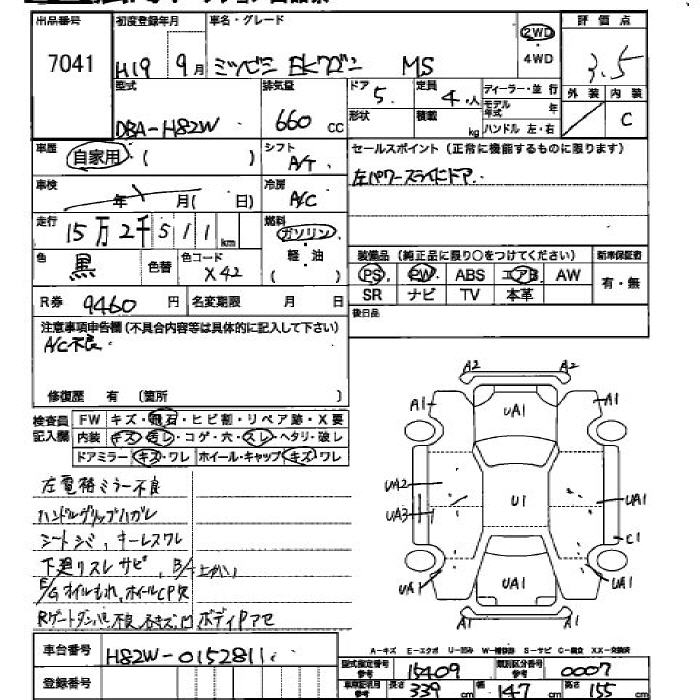 出品番号 初度登録年月 車名・グレード 評価点
7041 H19 9月 ミツビシ EKワゴン MS 2WD ・ 4WD 3.5
型式 排気量 ドア 定員 ディーラー・並行 外装 内装
DBA-H82W 660 CC 5 4人 モデル年式 年 C
形状 積載 kg ハンドル 左・右
車歴 自家用 ( ) シフト A/T
セールスポイント (正常に機能するものに限ります)
左パワースライドドア
車検 年 月( 日) 冷房 A/C
走行 15万2千511km 燃料 ガソリン 軽・油
色 黒 色替 色コード X42
装備品 (純正品に限り○をつけてください) 新車保証書
PS PW ABS エアB AW 有・無
SR ナビ TV 本革
R券 9460円 名変期限 月 日
後日品
注意事項申告欄(不具合内容等は具体的に記入して下さい)
A/C不良
修復歴 有 (箇所 )
検査員記入欄 FW キズ・飛石・ヒビ割・リペア跡・X要
内装 キズ・汚レ・コゲ・穴・スレ・ヘタリ・破レ
ドアミラー キズ・ワレ ホイール・キャップ キズ・ワレ
左電格ミラー不良
ハンドルグリップハガレ
シートシミ、キーレスワレ
下廻りスレ サビ、
E/Gオイルもれ、ホイールCP欠
Rゲートダンパー不良 ボディPアセ
A2 A2
A1 UA1 A1
UA2 U1 UA1
UA3 C1
UA1 UA1 UA1
A1 A1
A-キズ E-エクボ U-凹み W-補修跡 S-サビ C-腐食 XX-交換済
車台番号 H82W-0152811
型式指定番号 参考 15409 類別区分番号 参考 0007
登録番号
車庫証明用 参考 長さ 339 cm 幅 147 cm 高さ 155 cm